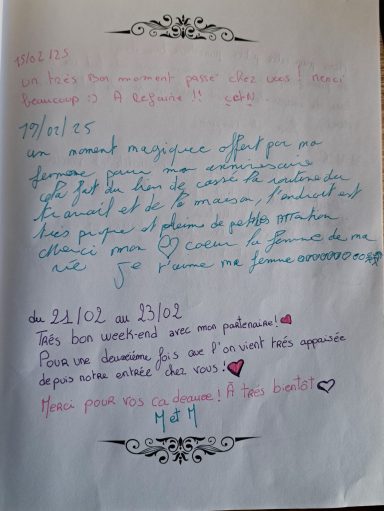 15/02/25
un très Bon moment passé chez vous ! merci
beaucoup :) A Refaire !!
19/02/25
un moment magique offert par ma
femme pour mon anniversaire
cela fait du bien de cassé la routine du
travail et de la maison, l'endroit est
très propre et pleine de petites attention
Merci mon ♡ coeur la femme de ma
vie je t'aime ma femme
du 21/02 au 23/02
Très bon week-end avec mon partenaire !
Pour une deuxième fois que l'on vient très appaisée
depuis notre entrée chez vous !
Merci pour vos cadeaux ! À très bientôt
M et M